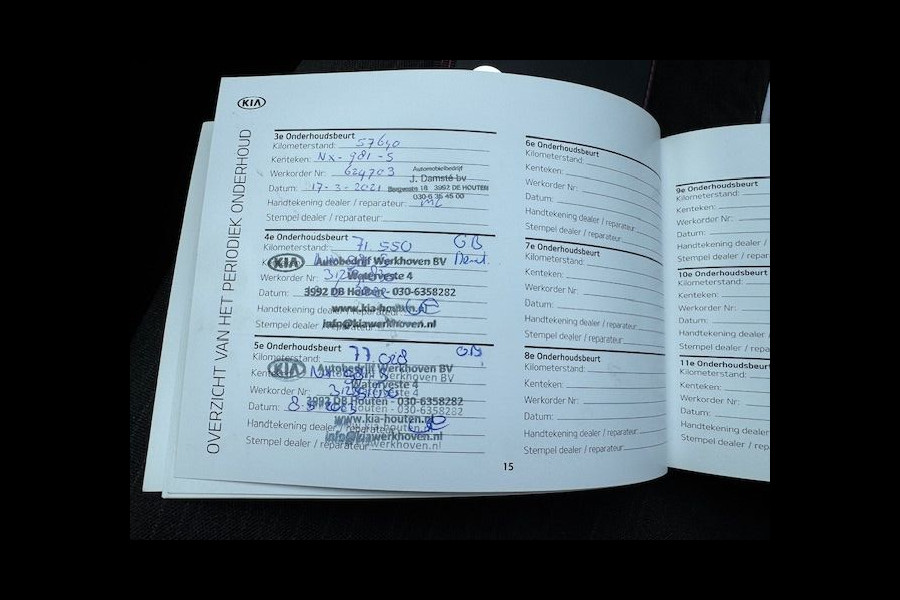 KIA
OVERZICHT VAN HET PERIODIEK ONDERHOUD
3e Onderhoudsbeurt
Kilometerstand: 57640
Kenteken: NX-981-S
Werkorder Nr: 624703
Datum: 17-3-2021
Handtekening dealer / reparateur:
Stempel dealer / reparateur:
Automobielbedrijf
J. Damsté bv
18, 3992 DE HOUTEN
030-6 35 45 00
4e Onderhoudsbeurt
Kilometerstand: 71 550 GB
Werkorder Nr:
Datum:
Handtekening dealer
Stempel dealer /
KIA Autobedrijf Werkhoven BV
Waterveste 4
3992 DB Houten - 030-6358282
www.kia-houten.nl
info@kiawerkhoven.nl
5e Onderhoudsbeurt
Kilometerstand: 77.028 GB
Werkorder Nr:
Datum:
Handtekening dealer / reparateur
Stempel dealer / reparateur
KIA Autobedrijf Werkhoven BV
Waterveste 4
3992 DB Houten - 030-6358282
www.kia-houten.nl
info@kiawerkhoven.nl
15
6e Onderhoudsbeurt
Kilometerstand:
Kenteken:
Werkorder Nr:
Datum:
Handtekening dealer / reparateur:
Stempel dealer / reparateur:
7e Onderhoudsbeurt
Kilometerstand:
Kenteken:
Werkorder Nr:
Datum:
Handtekening dealer / reparateur:
Stempel dealer / reparateur:
8e Onderhoudsbeurt
Kilometerstand:
Kenteken:
Werkorder Nr:
Datum:
Handtekening dealer / reparateur:
Stempel dealer / reparateur:
9e Onderhoudsbeurt
Kilometerstand:
Kenteken:
Werkorder Nr:
Datum:
Handtekening dealer /
Stempel dealer / repara
10e Onderhoudsbeurt
Kilometerstand:
Kenteken:
Werkorder Nr:
Datum:
Handtekening dealer /
Stempel dealer / repara
11e Onderhoudsbeurt
Kilometerstand:
Kenteken:
Werkorder Nr:
Datum:
Handtekening dealer /
Stempel dealer / repara